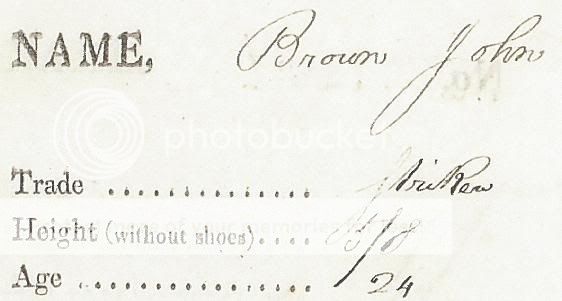 NAME, Brown John
photobucket
Trade ............... Striker
Height (without shoes).... 5/8
Age ................ 24